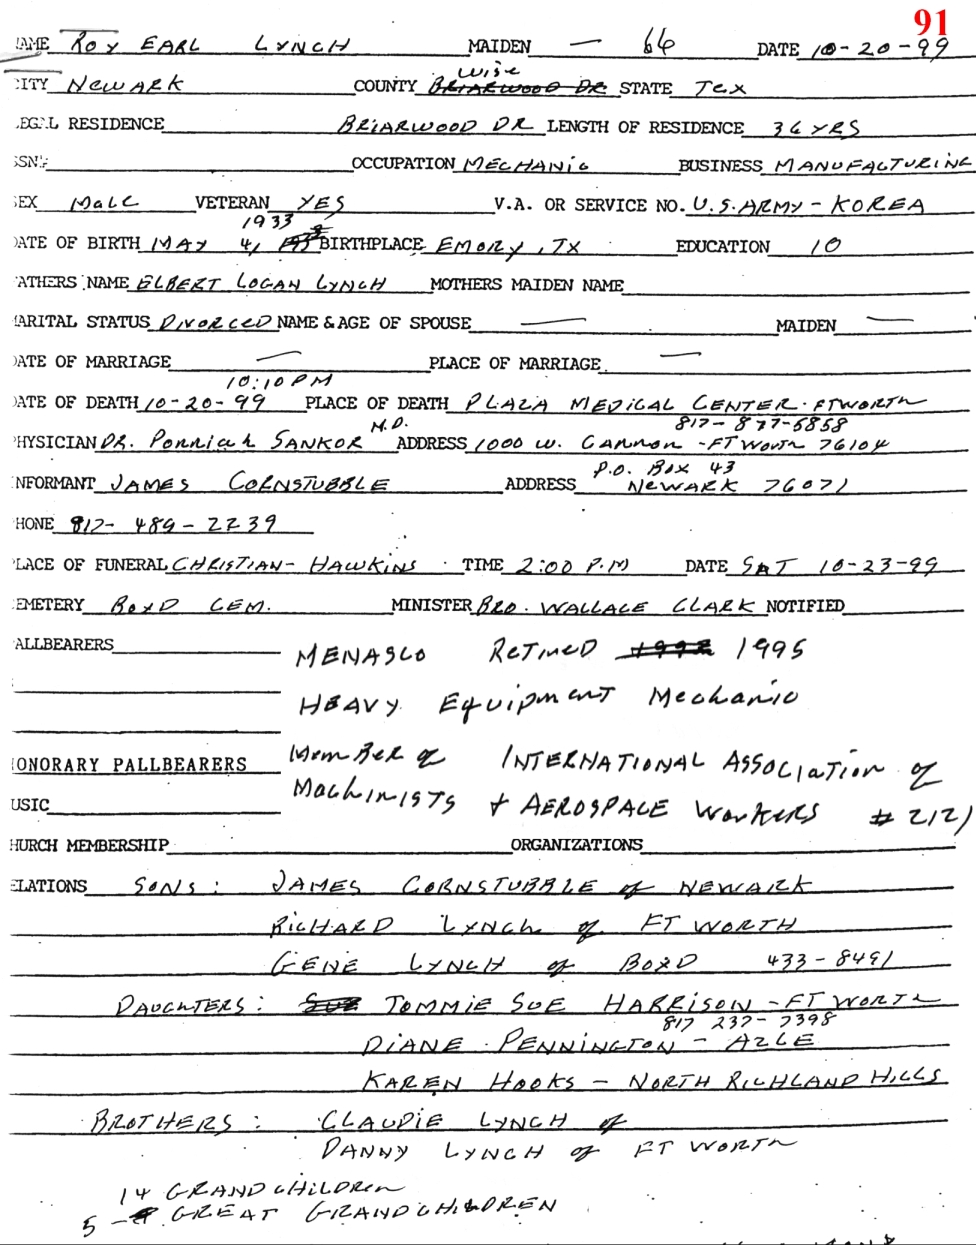 91
AME ROY EARL LYNCH MAIDEN — 66 DATE 10-20-99
CITY NEWARK COUNTY Wise BRIARWOOD DR STATE Tex
LEGAL RESIDENCE BRIARWOOD DR LENGTH OF RESIDENCE 36 YRS
SSN# OCCUPATION MECHANIC BUSINESS MANUFACTURING
SEX MALE VETERAN YES V.A. OR SERVICE NO. U.S. ARMY - KOREA
1933
DATE OF BIRTH MAY 4, BIRTHPLACE EMORY, TX EDUCATION 10
FATHERS NAME ELBERT LOGAN LYNCH MOTHERS MAIDEN NAME
MARITAL STATUS DIVORCED NAME & AGE OF SPOUSE — MAIDEN —
DATE OF MARRIAGE — PLACE OF MARRIAGE —
10:10 PM
DATE OF DEATH 10-20-99 PLACE OF DEATH PLAZA MEDICAL CENTER - FT WORTH
M.D. 817-877-5858
PHYSICIAN DR. Ponniah SANKOR ADDRESS 1000 W. Cannon - FT Worth 76104
P.O. Box 43
INFORMANT JAMES CORNSTUBBLE ADDRESS NEWARK 76071
PHONE 817-489-2239
PLACE OF FUNERAL CHRISTIAN-HAWKINS TIME 2:00 P.M DATE SAT 10-23-99
CEMETERY BOYD CEM. MINISTER BRO. WALLACE CLARK NOTIFIED
PALLBEARERS
MENASCO RETIRED 1995
HEAVY Equipment Mechanic
HONORARY PALLBEARERS Member of INTERNATIONAL ASSOCIATION of
MUSIC Machinists & AEROSPACE Workers # 2121
CHURCH MEMBERSHIP ORGANIZATIONS
RELATIONS SONS: JAMES CORNSTUBBLE of NEWARK
RICHARD LYNCH of FT WORTH
GENE LYNCH of BOYD 433-8491
DAUGHTERS: SUE TOMMIE SUE HARRISON - FT WORTH
817 237-7398
DIANE PENNINGTON - AZLE
KAREN HOOKS - NORTH RICHLAND HILLS
BROTHERS: CLAUDIE LYNCH of
DANNY LYNCH of FT WORTH
14 GRANDCHILDREN
5 - GREAT GRANDCHILDREN